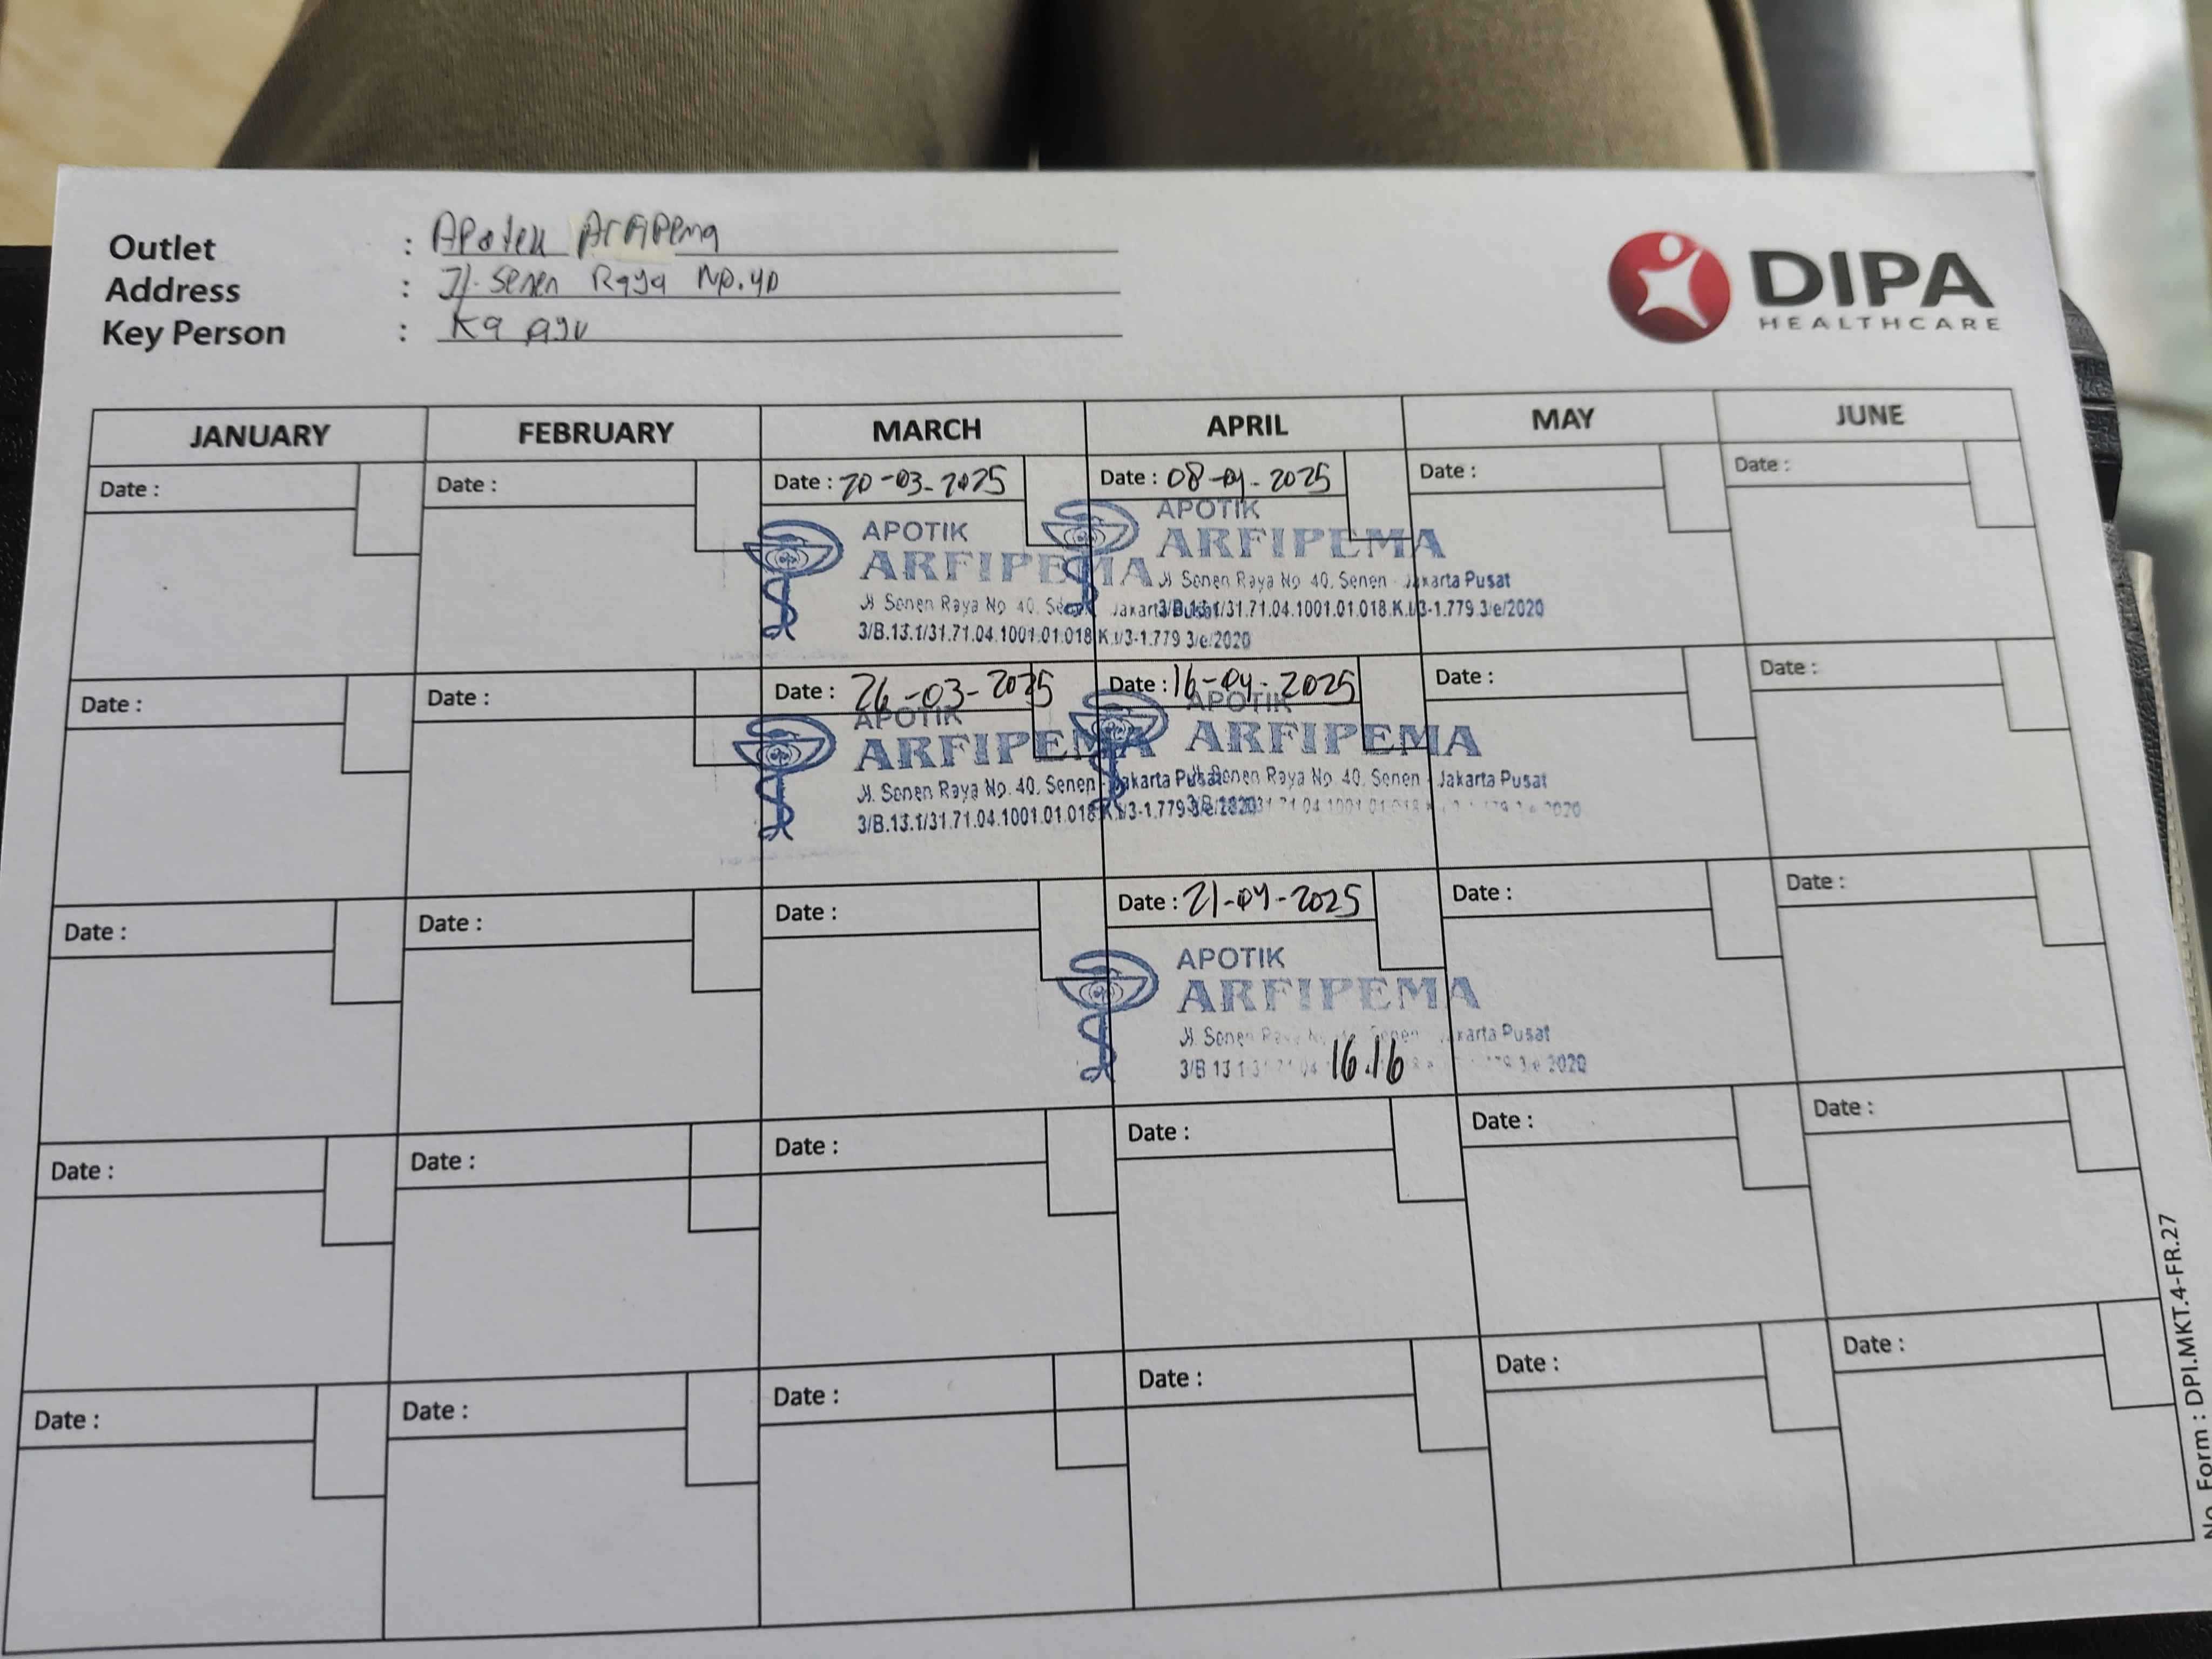 Outlet : Apotek Arfipema
Address : Jl. Senen Raya No. 40
Key Person : Ka Ayu
DIPA
HEALTHCARE
JANUARY FEBRUARY MARCH APRIL MAY JUNE
Date : Date : Date : 20-03-2025 Date : 08-04-2025 Date : Date :
APOTIK
ARFIPEMA
Jl Senen Raya No 40. Senen Jakarta Pusat
3/B.13.1/31.71.04.1001.01.018.K.1/3-1.779 3/e/2020
APOTIK
ARFIPEMA
Jl Senen Raya No 40. Senen - Jakarta Pusat
3/B.13.1/31.71.04.1001.01.018.K.1/3-1.779 3/e/2020
Date : Date : Date : 26-03-2025 Date : 16-04-2025 Date : Date :
APOTIK
ARFIPEMA
Jl. Senen Raya No. 40. Senen - Jakarta Pusat
3/B.13.1/31.71.04.1001.01.018.K.1/3-1.779 3/e/2020
APOTIK
ARFIPEMA
Jl. Senen Raya No. 40. Senen - Jakarta Pusat
Date : Date : Date : Date : 21-04-2025 Date : Date :
APOTIK
ARFIPEMA
Jl. Senen Jakarta Pusat
16.16
Date : Date : Date : Date : Date : Date :
Date : Date : Date : Date : Date : Date :
No. Form : DPI.MKT.4-FR.27